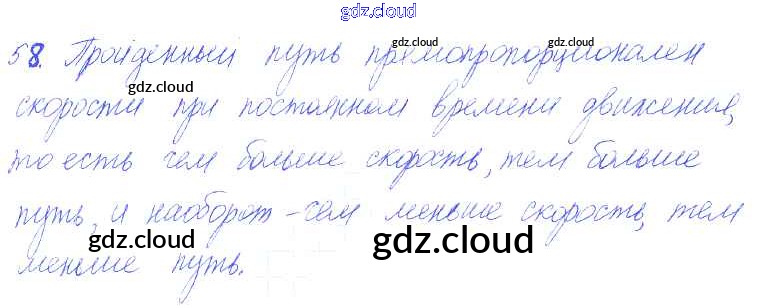 gdz.cloud
58. Пройденный путь прямопропорционален
gdz.cloud gdz.cloud
скорости при постоянном времени движения,
то есть чем больше скорость, тем больше
путь, и наоборот - чем меньше скорость, тем
gdz.cloud gdz.cloud
меньше путь.